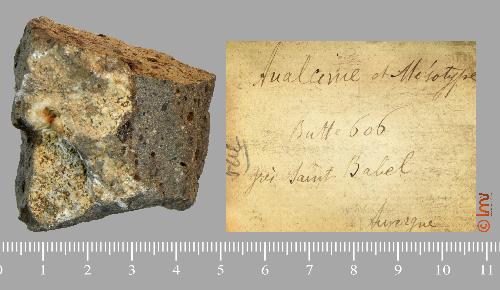 Analcime et Mésotype
Butte 606
près Saint Babel
Auvergne
© lmv
0 1 2 3 4 5 6 7 8 9 10 11